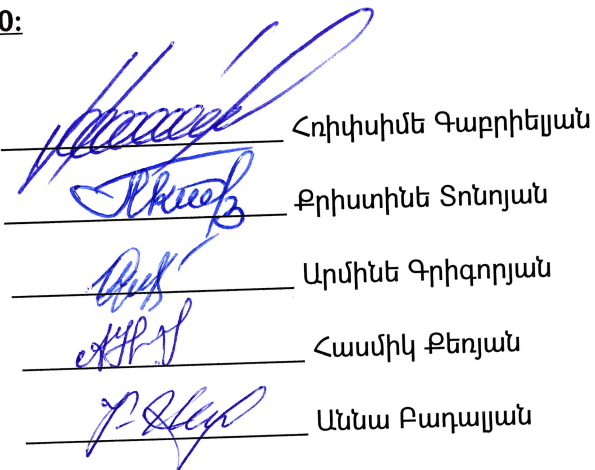 0:
Հռիփսիմե Գաբրիելյան
Քրիստինե Տոնոյան
Արմինե Գրիգորյան
Հասմիկ Քեռյան
Աննա Բադալյան